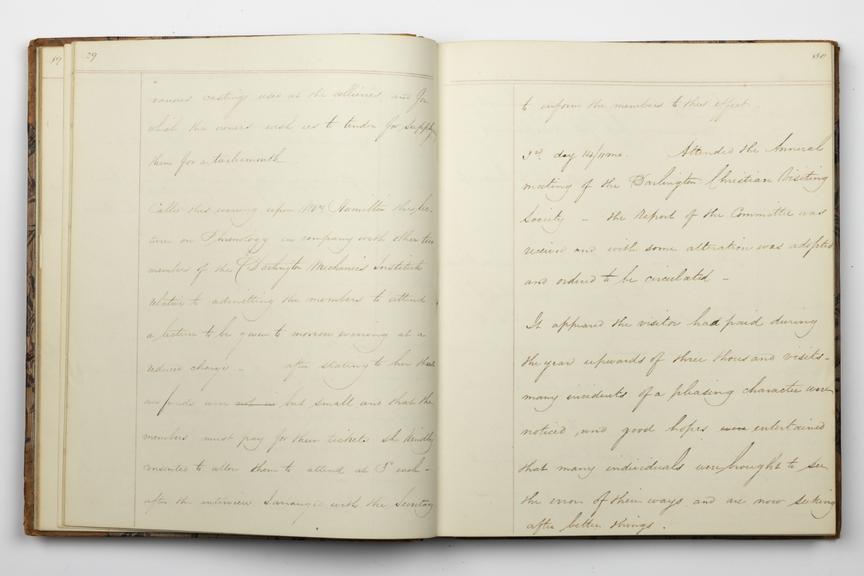 29
various castings used at the collieries and for
which the owners wish us to tender for supply
them for a twelvemonth
Called this evening upon Mrs Hamilton the lec-
turer on Phrenology in company with other two
members of the Darlington Mechanics Institute
relative to admitting the members to attend
a lecture to be given to morrow evening at a
reduced charge - after stating to her that
our funds were but small and that the
members must pay for their tickets she kindly
consented to allow them to attend at each -
after the interview I arranged with the Secretary
30
to inform the members to this effect.
3rd. day Attended the Annual
meeting of the Darlington Christian Visiting
Society - the Report of the Committee was
received and with some alteration was adopted
and ordered to be circulated -
It appeared the visitor had paid during
the year upwards of three thousand visits -
many incidents of a pleasing character were
noticed, and good hopes were entertained
that many individuals were brought to see
the error of their ways and are now seeking
after better things.